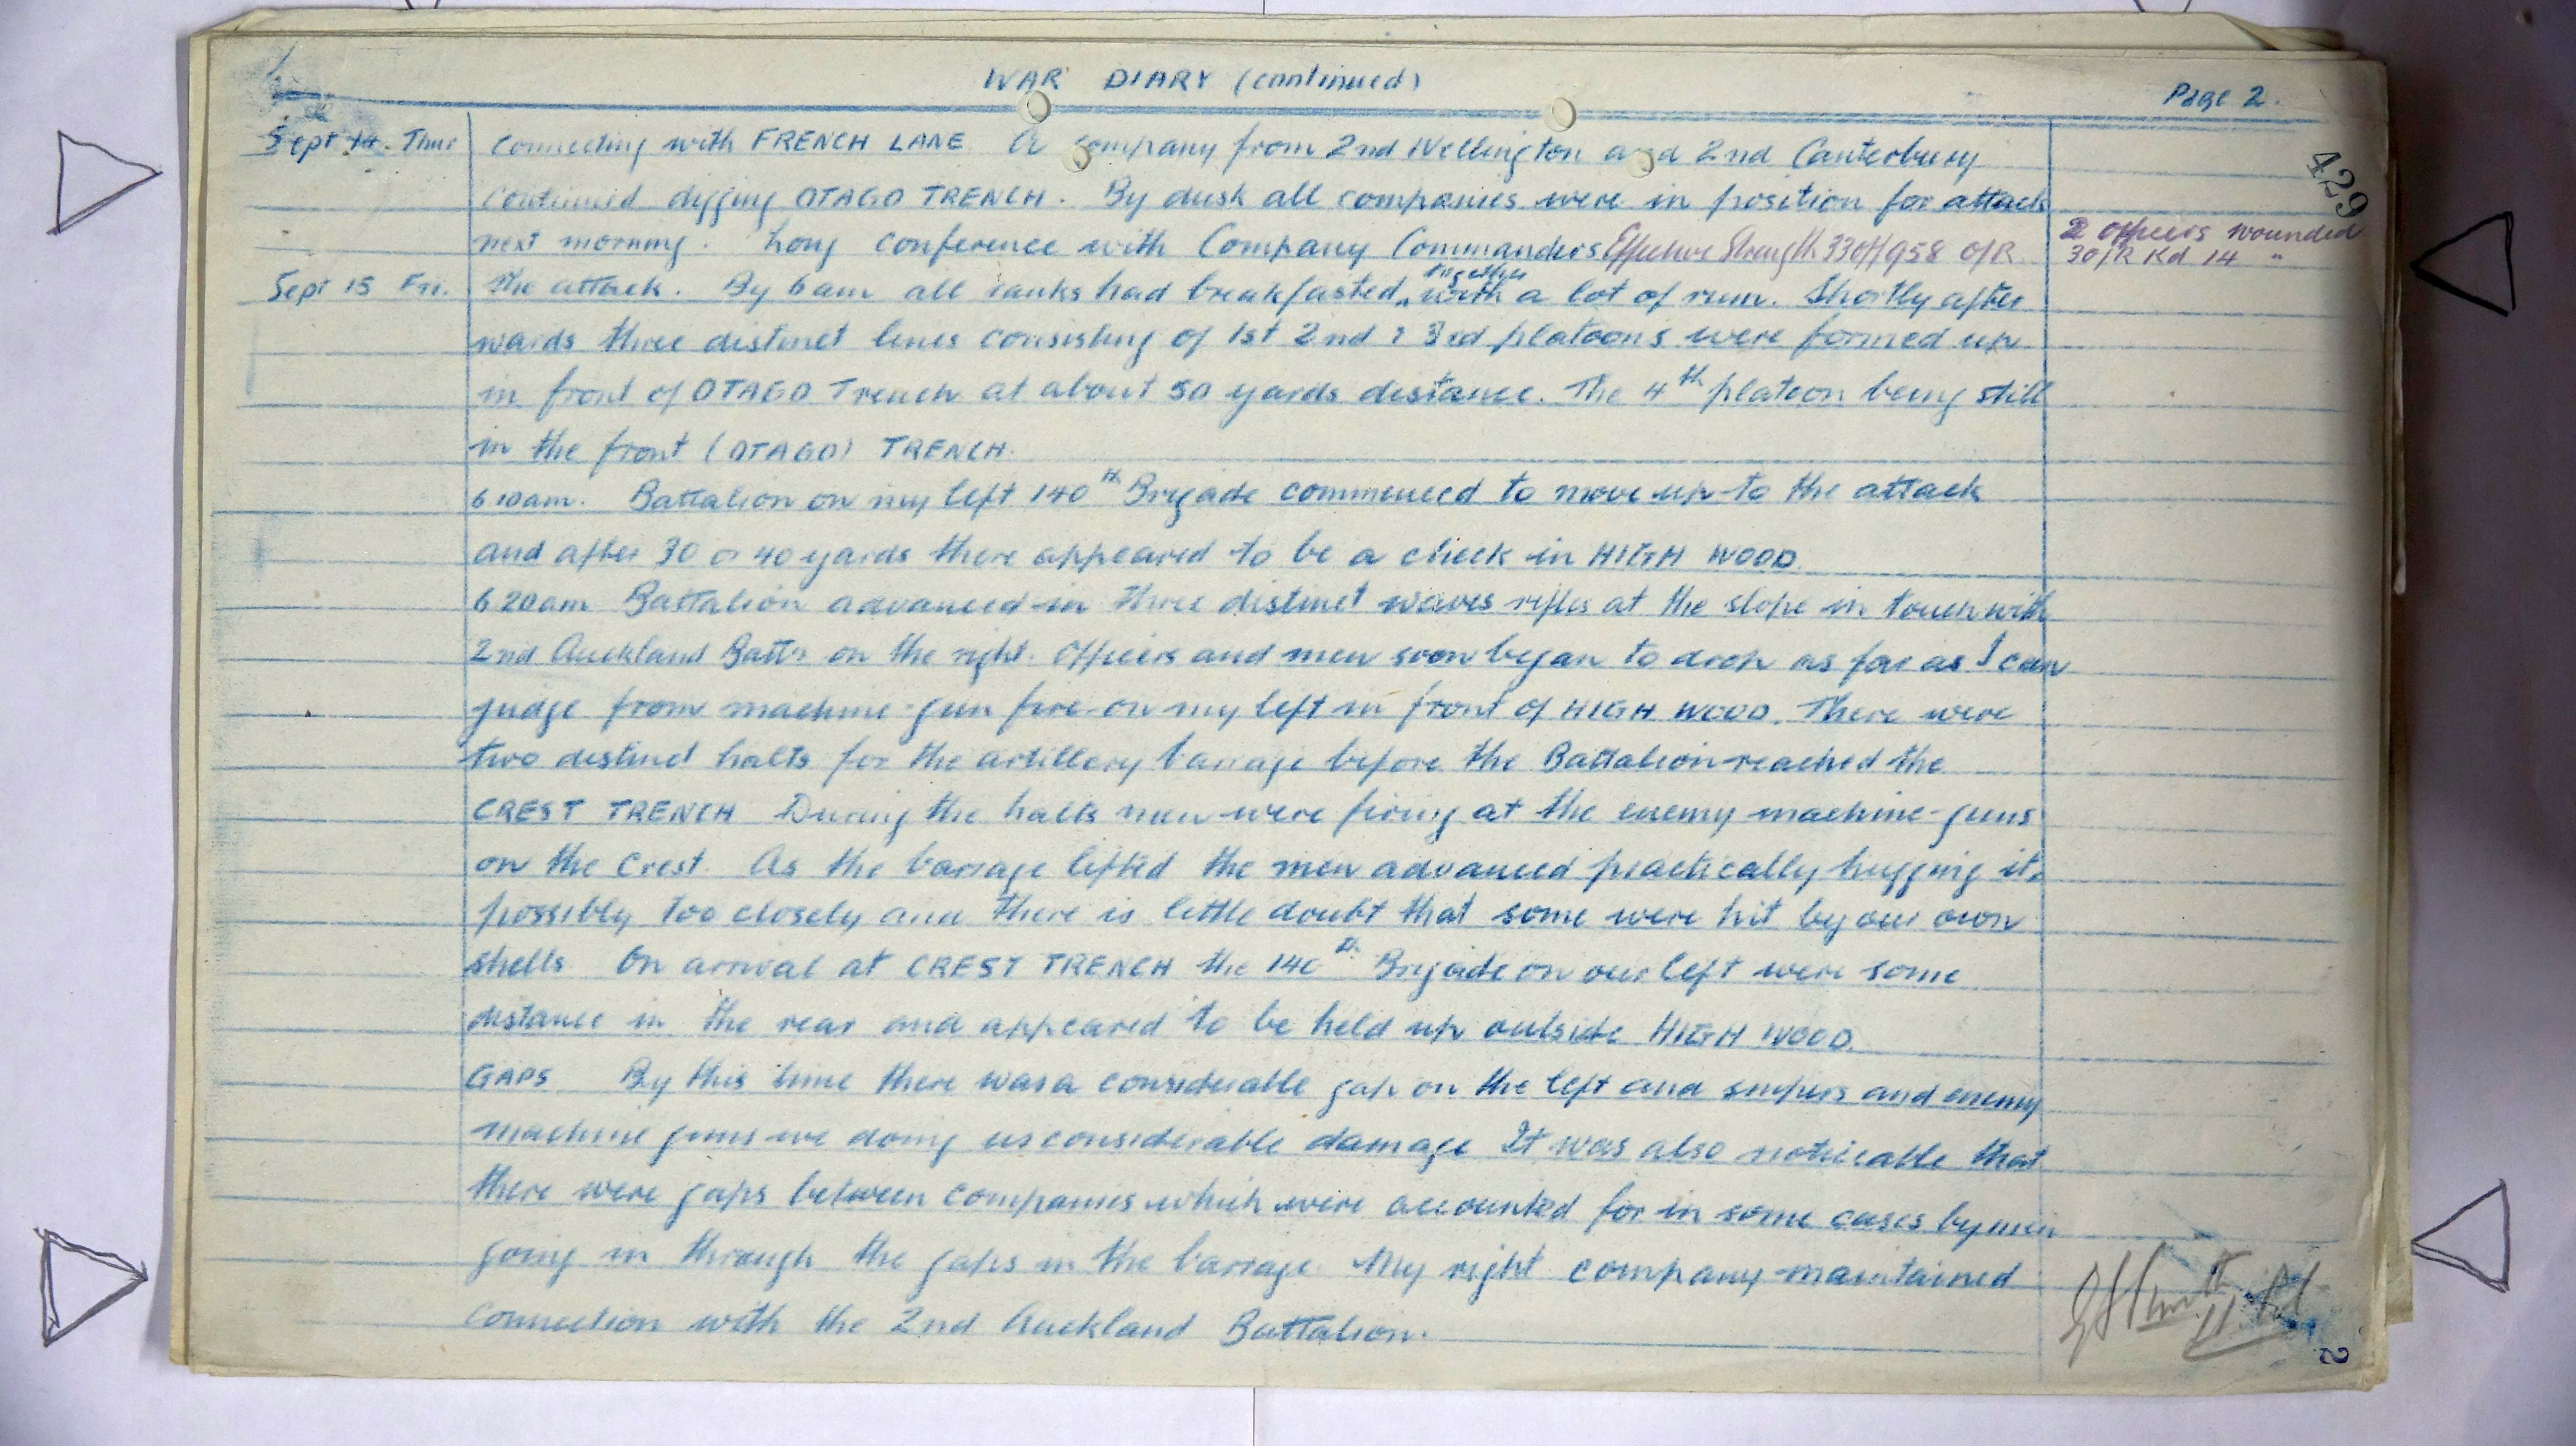 WAR DIARY (continued)
Page 2.
429
Sept 14. Thur connecting with FRENCH LANE A company from 2nd Wellington and 2nd Canterbury
continued digging OTAGO TRENCH. By dusk all companies were in position for attack
next morning. Long conference with Company Commanders Effective Strength 33 Off 958 O/R. 2 Officers wounded
3 O/R Kd 14 "
together
Sept 15 Fri. The attack. By 6 am all ranks had breakfasted, with a lot of rum. Shortly after
wards three distinct lines consisting of 1st 2nd & 3rd platoons were formed up
in front of OTAGO Trench at about 50 yards distance. The 4th platoon being still
in the front (OTAGO) TRENCH.
6 10am. Battalion on my left 140th Brigade commenced to move up to the attack
and after 30 or 40 yards there appeared to be a check in HIGH WOOD.
6 20am Battalion advanced in three distinct waves rifles at the slope in touch with
2nd Auckland Battn on the right. Officers and men soon began to drop as far as I can
judge from machine-gun fire on my left in front of HIGH WOOD. There were
two distinct halts for the artillery barrage before the Battalion reached the
CREST TRENCH During the halts men were firing at the enemy machine-guns
on the Crest. As the barrage lifted the men advanced practically hugging it,
possibly too closely and there is little doubt that some were hit by our own
shells On arrival at CREST TRENCH the 140th Brigade on our left were some
distance in the rear and appeared to be held up outside HIGH WOOD.
GAPS By this time there was a considerable gap on the left and snipers and enemy
machine guns doing us considerable damage It was also noticeable that
there were gaps between companies which were accounted for in some cases by men
going in through the gaps in the barrage. My right company maintained
connection with the 2nd Auckland Battalion.
2